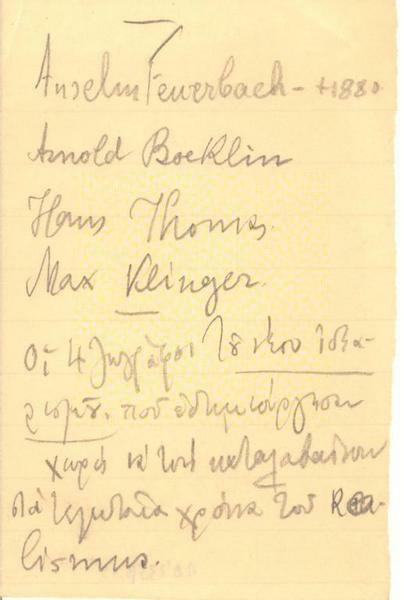 Anselm Feuerbach - +1880
Arnold Boeklin
Hans Thoma
Max Klinger.
Οἱ 4 ζωγράφοι τοῦ νέου Ἰδεα-
λισμοῦ. ποὺ ἐδημιούργησαν
χωρὶς νὰ τοὺς καταλαβαίνουν
στὰ τελευταῖα χρόνια τοῦ Rea-
lismus.